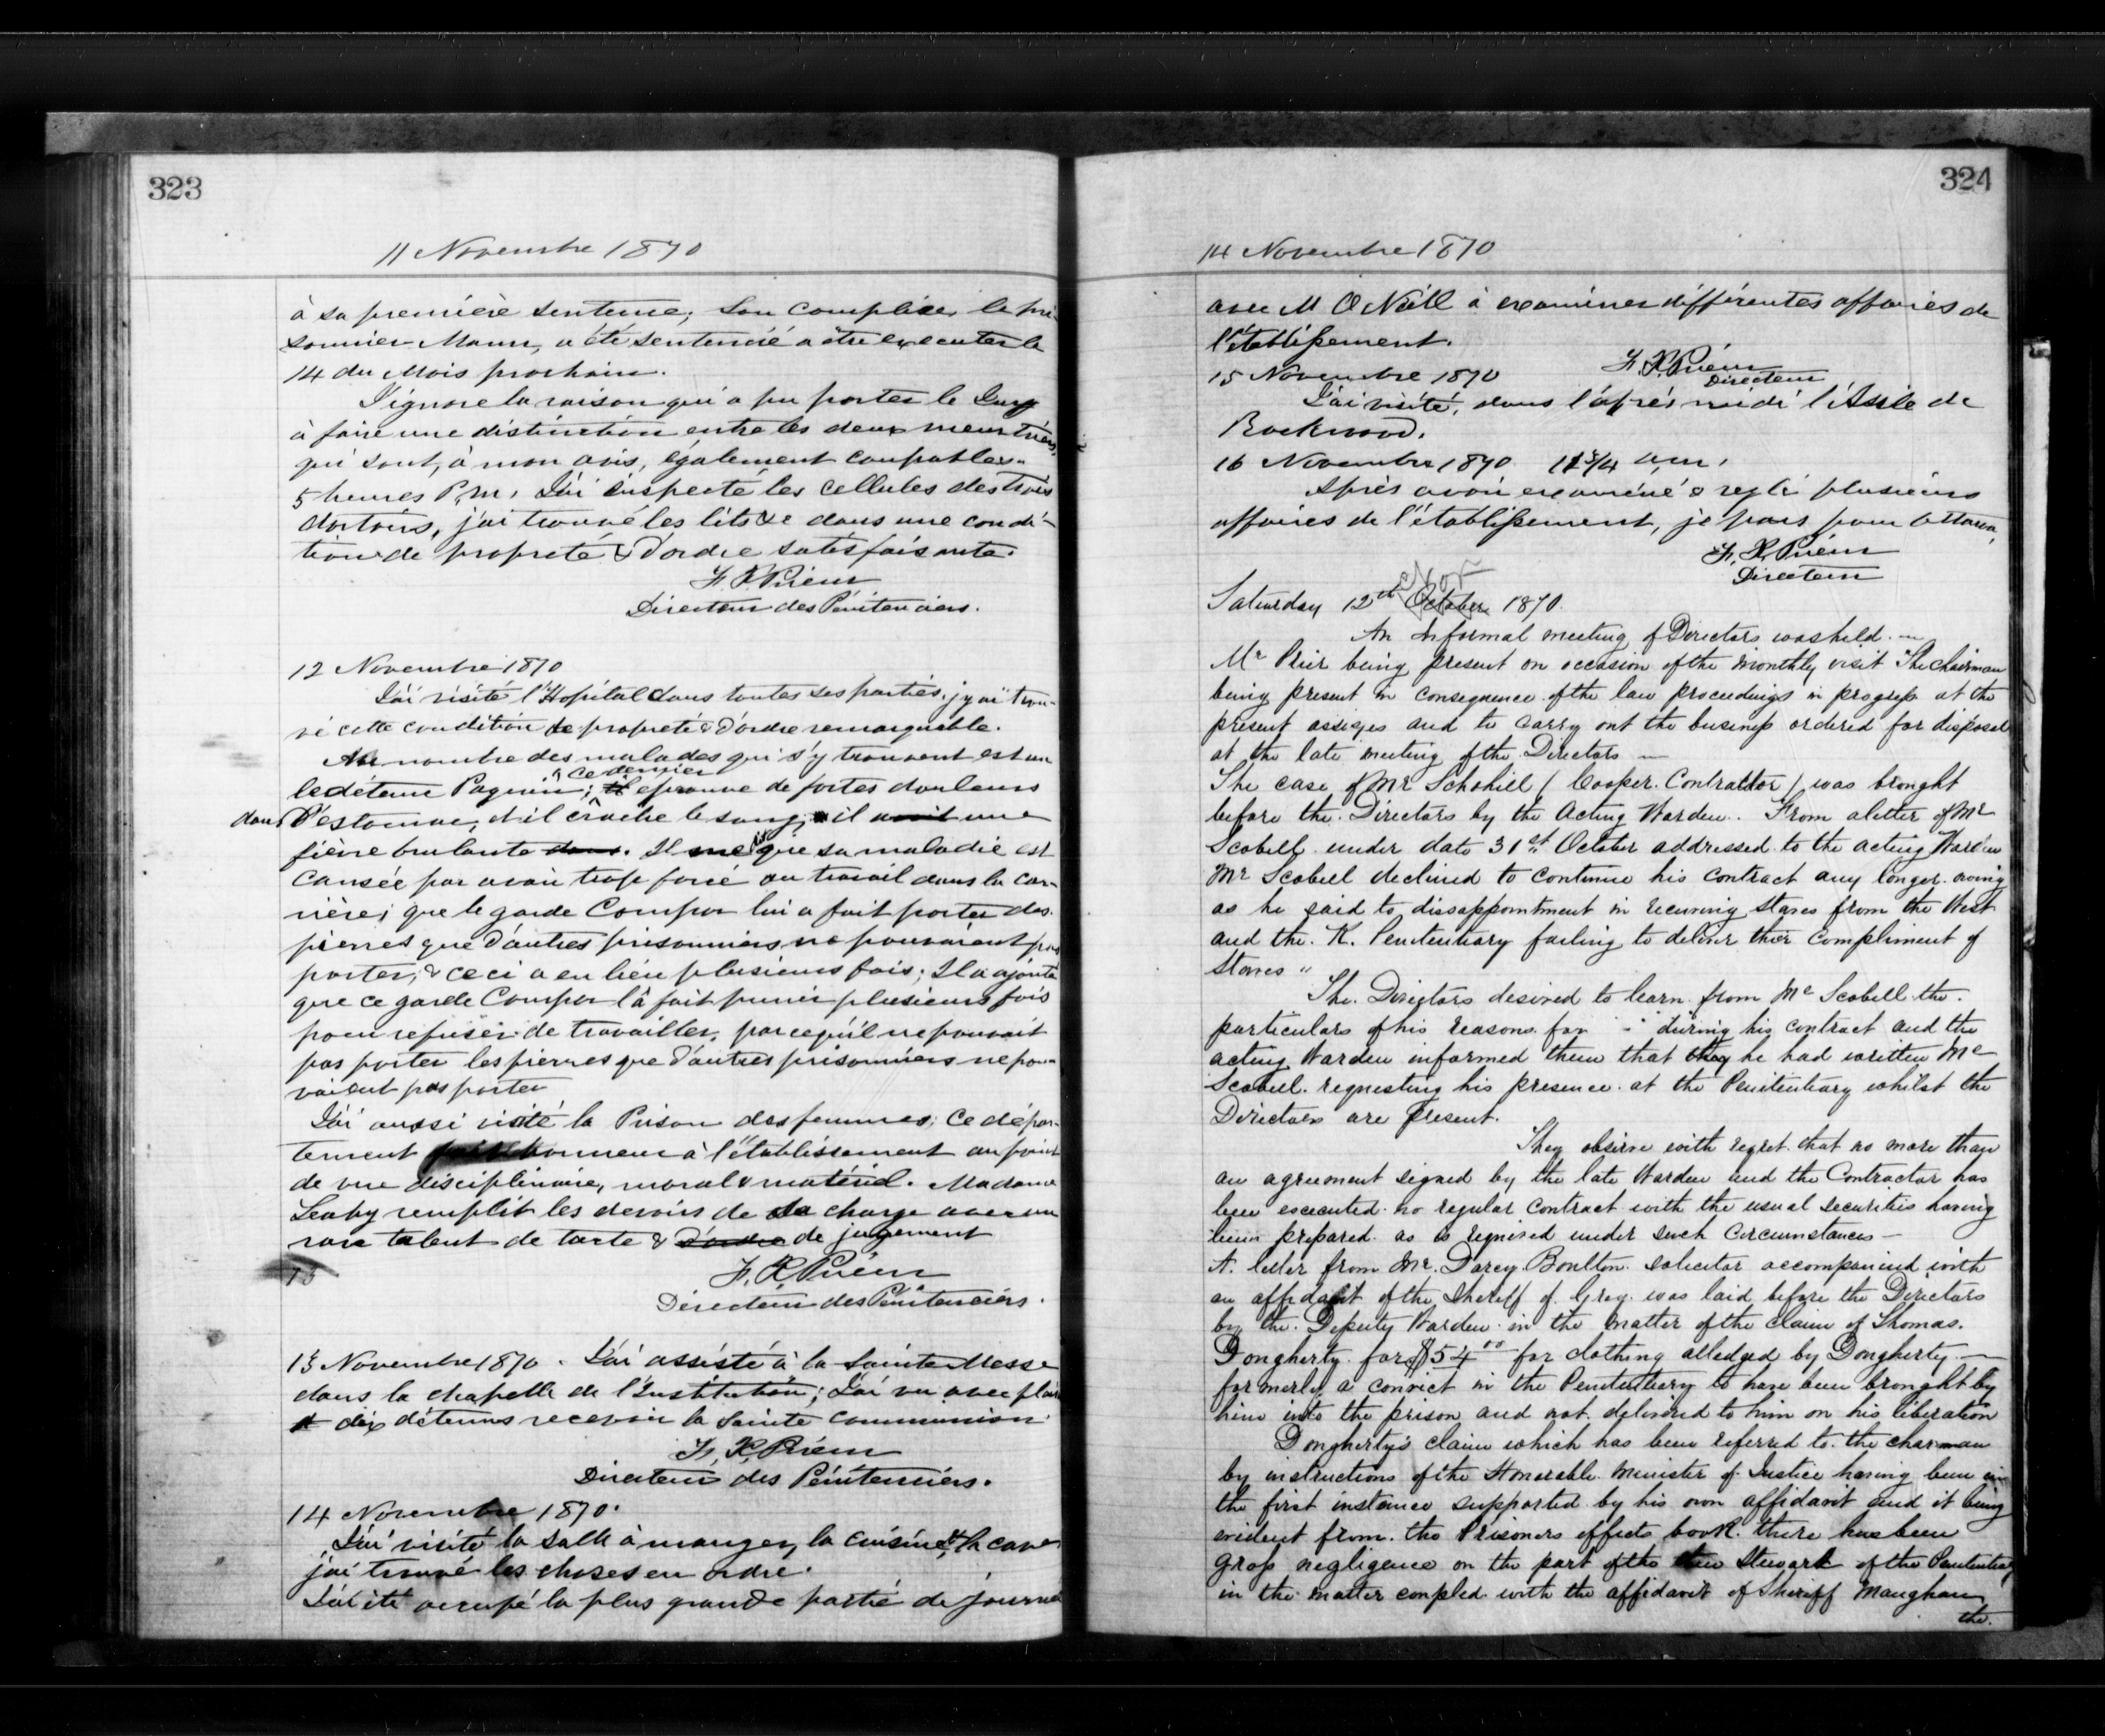 323
11 Novembre 1870
à sa première sentence; son complice, le pri-
sonnier Mann, a été sentencié a être executer le
14 du Mois prochain.
J'ignore la raison qui a pu porter le Jury
à faire une distinction entre les deux meurtriers,
qui sont, à mon avis, également coupables.
5 heures P.m. J'ai inspecté les cellules des trois
dortoirs, j'ai trouvé les lits &c dans une condi-
tion de propreté & d'ordre satisfaisante.
F. X. Prieur
Directeur des Pénitenciers.
12 Novembre 1870
J'ai visité l'Hopital dans toutes ses parties, j'y ai trou-
vé cette condition de propreté & d'ordre remarquable.
Au nombre des malades qui s'y trouvent est un
ce dernier
le détenu Paquin; il eprouve de fortes douleurs
dans l'estomac, et il crâche le sang, il avait une
fièvre brulante dans. Il me dit que sa maladie est
causée par avoir trop forcé au travail dans la car-
rière; que le garde Compor lui a fait porter des
pierres que d'autres prisonniers ne pouvaient pas
porter, & ceci a eu lieu plusieurs fois; Il a ajouté
que ce garde Compor l'à fait punir plusieurs fois
pour refuser de travailler, parcequ'il ne pouvait
pas porter les pierres que d'autres prisonniers ne pou-
vaient pas porter
J'ai aussi visité la Prison des femmes; Ce dépar-
tement fait honneur à l'établissement au point
de vue disciplinaire, moral & matériel. Madame
Leahy remplit les devoirs de sa charge avec un
rare talent de tacte & d'ordre de jugement
13
F. X. Prieur
Directeur des Pénitenciers.
13 Novembre 1870. J'ai assisté à la Sainte Messe
dans la chapelle de l'Institution; J'ai vu avec plaisir
dix détenus recevoir la Sainte Communion.
F. X. Prieur
Directeur des Pénitenciers.
14 Novembre 1870.
J'ai visité la salle à manger, la cuisine & la cave
j'ai trouvé les choses en ordre.
J'ai été occupé la plus grande partie de journée
324
14 Novembre 1870
avec M O'Neill à examiner différentes affaires de
l'établissement.
F. X. Prieur
Directeur
15 Novembre 1870
J'ai visité, dans l'après midi l'Asile de
Rockwood.
16 Novembre 1870 11 3/4 a.m.
Après avoir examiné & reglé plusieurs
affaires de l'établissement, je pars pour Ottawa,
F. X. Prieur
Directeur
Nov
Saturday 12th October 1870.
An Informal meeting of Directors was held.—
Mr Prieir being present on occasion of the monthly visit The Chairman
being present in consequence of the law proceedings in progress at the
present assizes and to carry out the business ordered for disposal
at the late meeting of the Directors —
The case of Mr Schobill (Cooper Contractor) was brought
before the Directors by the Acting Warden. From a letter of Mr
Scobell under date 31st October addressed to the acting Warden
Mr Scobell declined to continue his contract any longer owing
as he said to dissappointment in recurving staves from the West
and the K. Penitentiary failing to deliver their compliment of
staves "
The Directors desired to learn from Mr Scobell the
particulars of his reasons for during his contract and the
acting Warden informed them that they he had written Mr
Scobell requesting his presence at the Penitentiary whilst the
Directors are present.
They observe with regret that no more than
an agreement signed by the late Warden and the Contractor has
been executed no regular contract with the usual securities having
been prepared as is required under such circumstances —
A letter from Mr. Darcy Boulton solicitor accompanied with
an affidavit of the Sheriff of Grey was laid before the Directors
by the Deputy Warden in the matter of the claim of Thomas
Dougherty for $54 00 for clothing alledged by Dougherty —
formerly a convict in the Penitentiary to have been brought by
him into the prison and not delivered to him on his liberation
Dougherty's claim which has been referred to the chairman
by instructions of the Honorable Minister of Justice having been in
the first instance supported by his own affidavit and it being
evident from the Prisoners effects book there has been
gross negligence on the part of the Steward of the Penitentiary
in the matter coupled with the affidavit of Sheriff Maughan
the